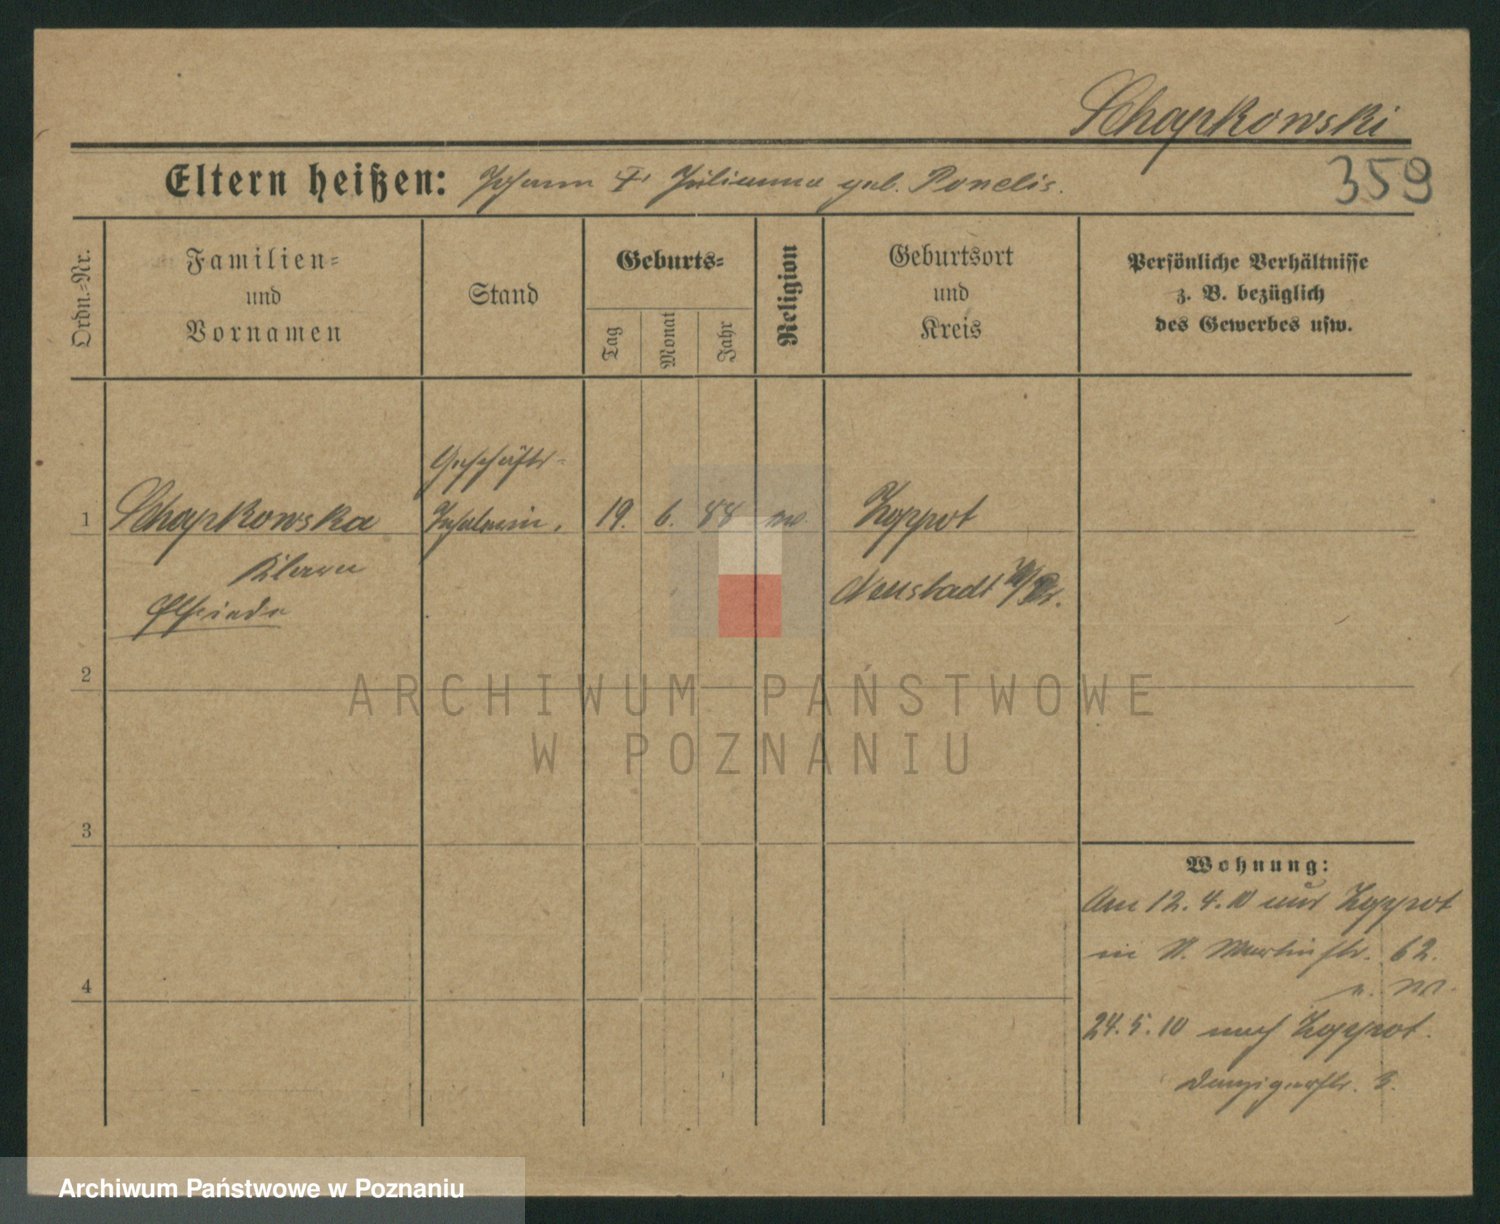 Schapkowski
359
Eltern heißen: Johann u. Julianna geb. Ponelis.
Ordn.-Nr.
Familien-
und
Vornamen
Stand
Geburts-
Tag
Monat
Jahr
Religion
Geburtsort
und
Kreis
Persönliche Verhältnisse
z. B. bezüglich
des Gewerbes usw.
Geschäfts-
1 Schapkowska Inhaberin, 19. 6. 88 Zoppot
Klara
Elfriede
Neustadt W/Pr.
2
3
4
ARCHIWUM PAŃSTWOWE
W POZNANIU
Wohnung:
Am 12.4.10 aus Zoppot
in St. Martinstr. 62.
24.5.10 nach Zoppot.
Danzigerstr. 3.
Archiwum Państwowe w Poznaniu